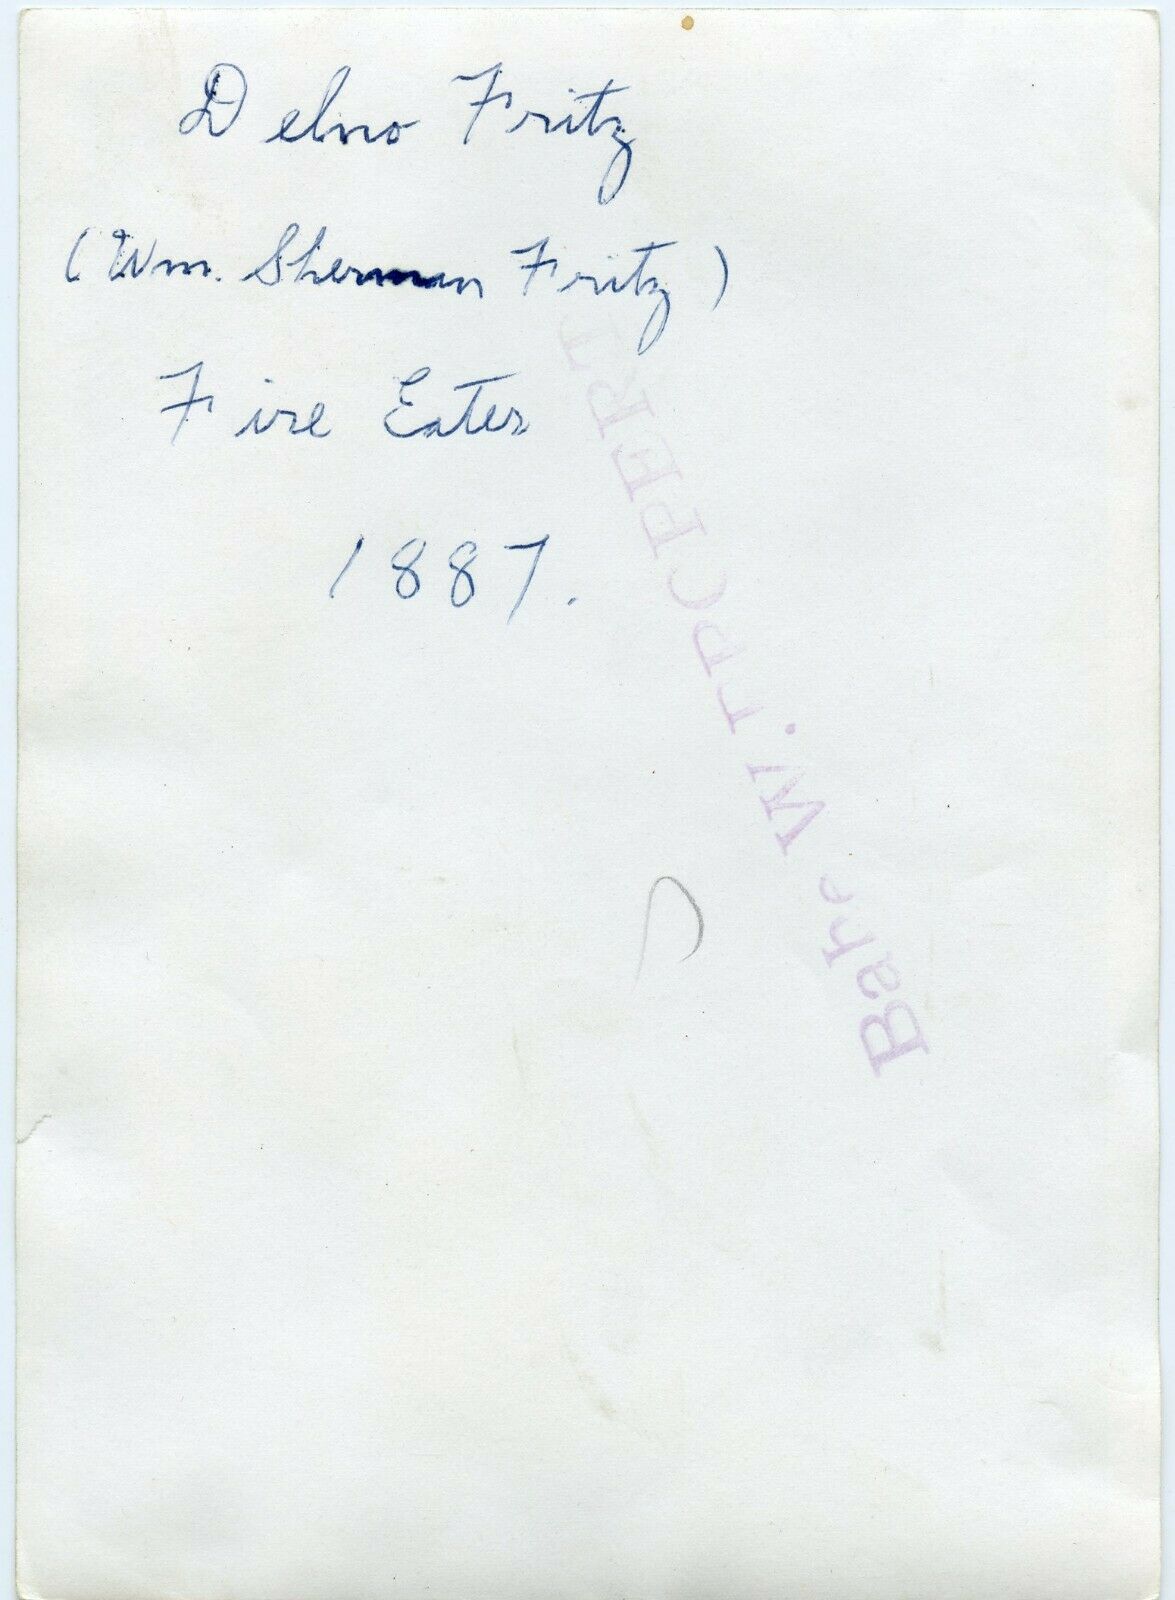 Delno Fritz
(Wm. Sherman Fritz)
Fire Eater
1887.